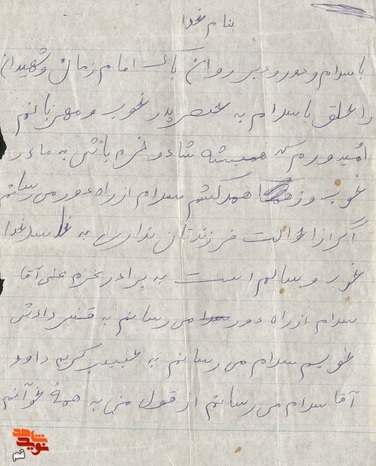 بنام خدا
با سلام و درود بر روان پاک امام زمان و شهیدان
با سلام به حضر پدر خوب و مهربانم
امیدورم که همیشه شاد و خرم باشی به ماه
خوب سلام از راه دور می رسانم
اگر از احالت فرزندتان بداری به خدا
خوب و سالم است به برادر بخرم علی آقا
سلام از راه دور می رسانم به قنبر داداش
خوبم سلام می رسانم به حبیب کریم داود
آقا سلام می رسانم از قول من به همهٔ خوآنم
نوید شاهد